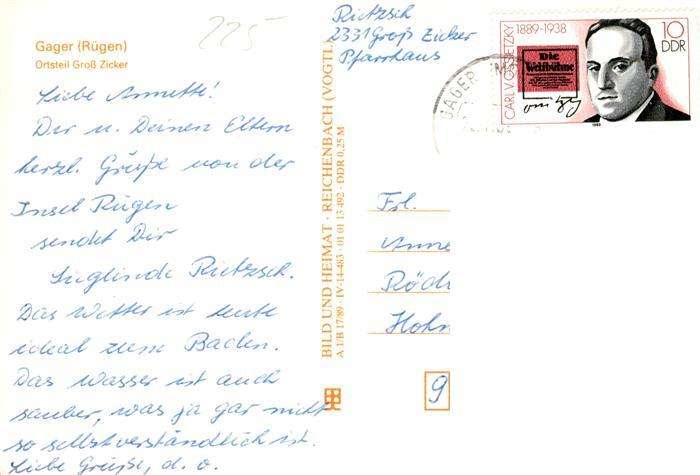 225
Gager (Rügen)
Ortsteil Groß Zicker
Liebe Annette!
Dir u. Deinen Eltern
herzl. Grüße von der
Insel Rügen
sendet Dir
Sieglinde Rietzsch.
Das Wetter ist heute
ideal zum Baden.
Das Wasser ist auch
sauber, was ja gar nicht
so selbstverständlich ist.
Liebe Grüße, d. o.
BILD UND HEIMAT · REICHENBACH (VOGTL
A 1/B 17/89 · IV-14-483 · 01 01 13 492 · DDR 0,25 M
Rietzsch
2331 Groß Zicker
Pfarrhaus
GAGER
CARL V. OSSIETZKY 1889-1938
Die
Weltbühne
10
DDR
Frl.
Anne
Röd
Hohn
9